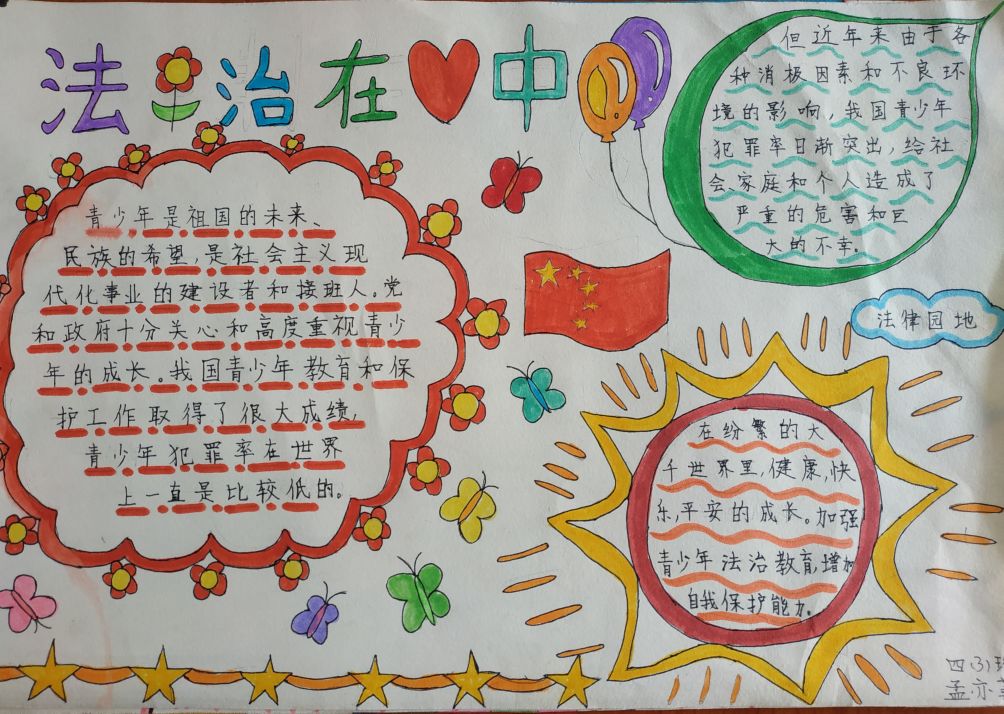 法治在中
青少年是祖国的未来、
民族的希望,是社会主义现
代化事业的建设者和接班人。党
和政府十分关心和高度重视青少
年的成长。我国青少年教育和保
护工作取得了很大成绩,
青少年犯罪率在世界
上一直是比较低的。
但近年来由于各
种消极因素和不良环
境的影响,我国青少年
犯罪率日渐突出,给社
会、家庭和个人造成了
严重的危害和巨
大的不幸。
法律园地
在纷繁的大
千世界里,健康,快
乐,平安的成长。加强
青少年法治教育,增加
自我保护能力。
四(3)
孟亦